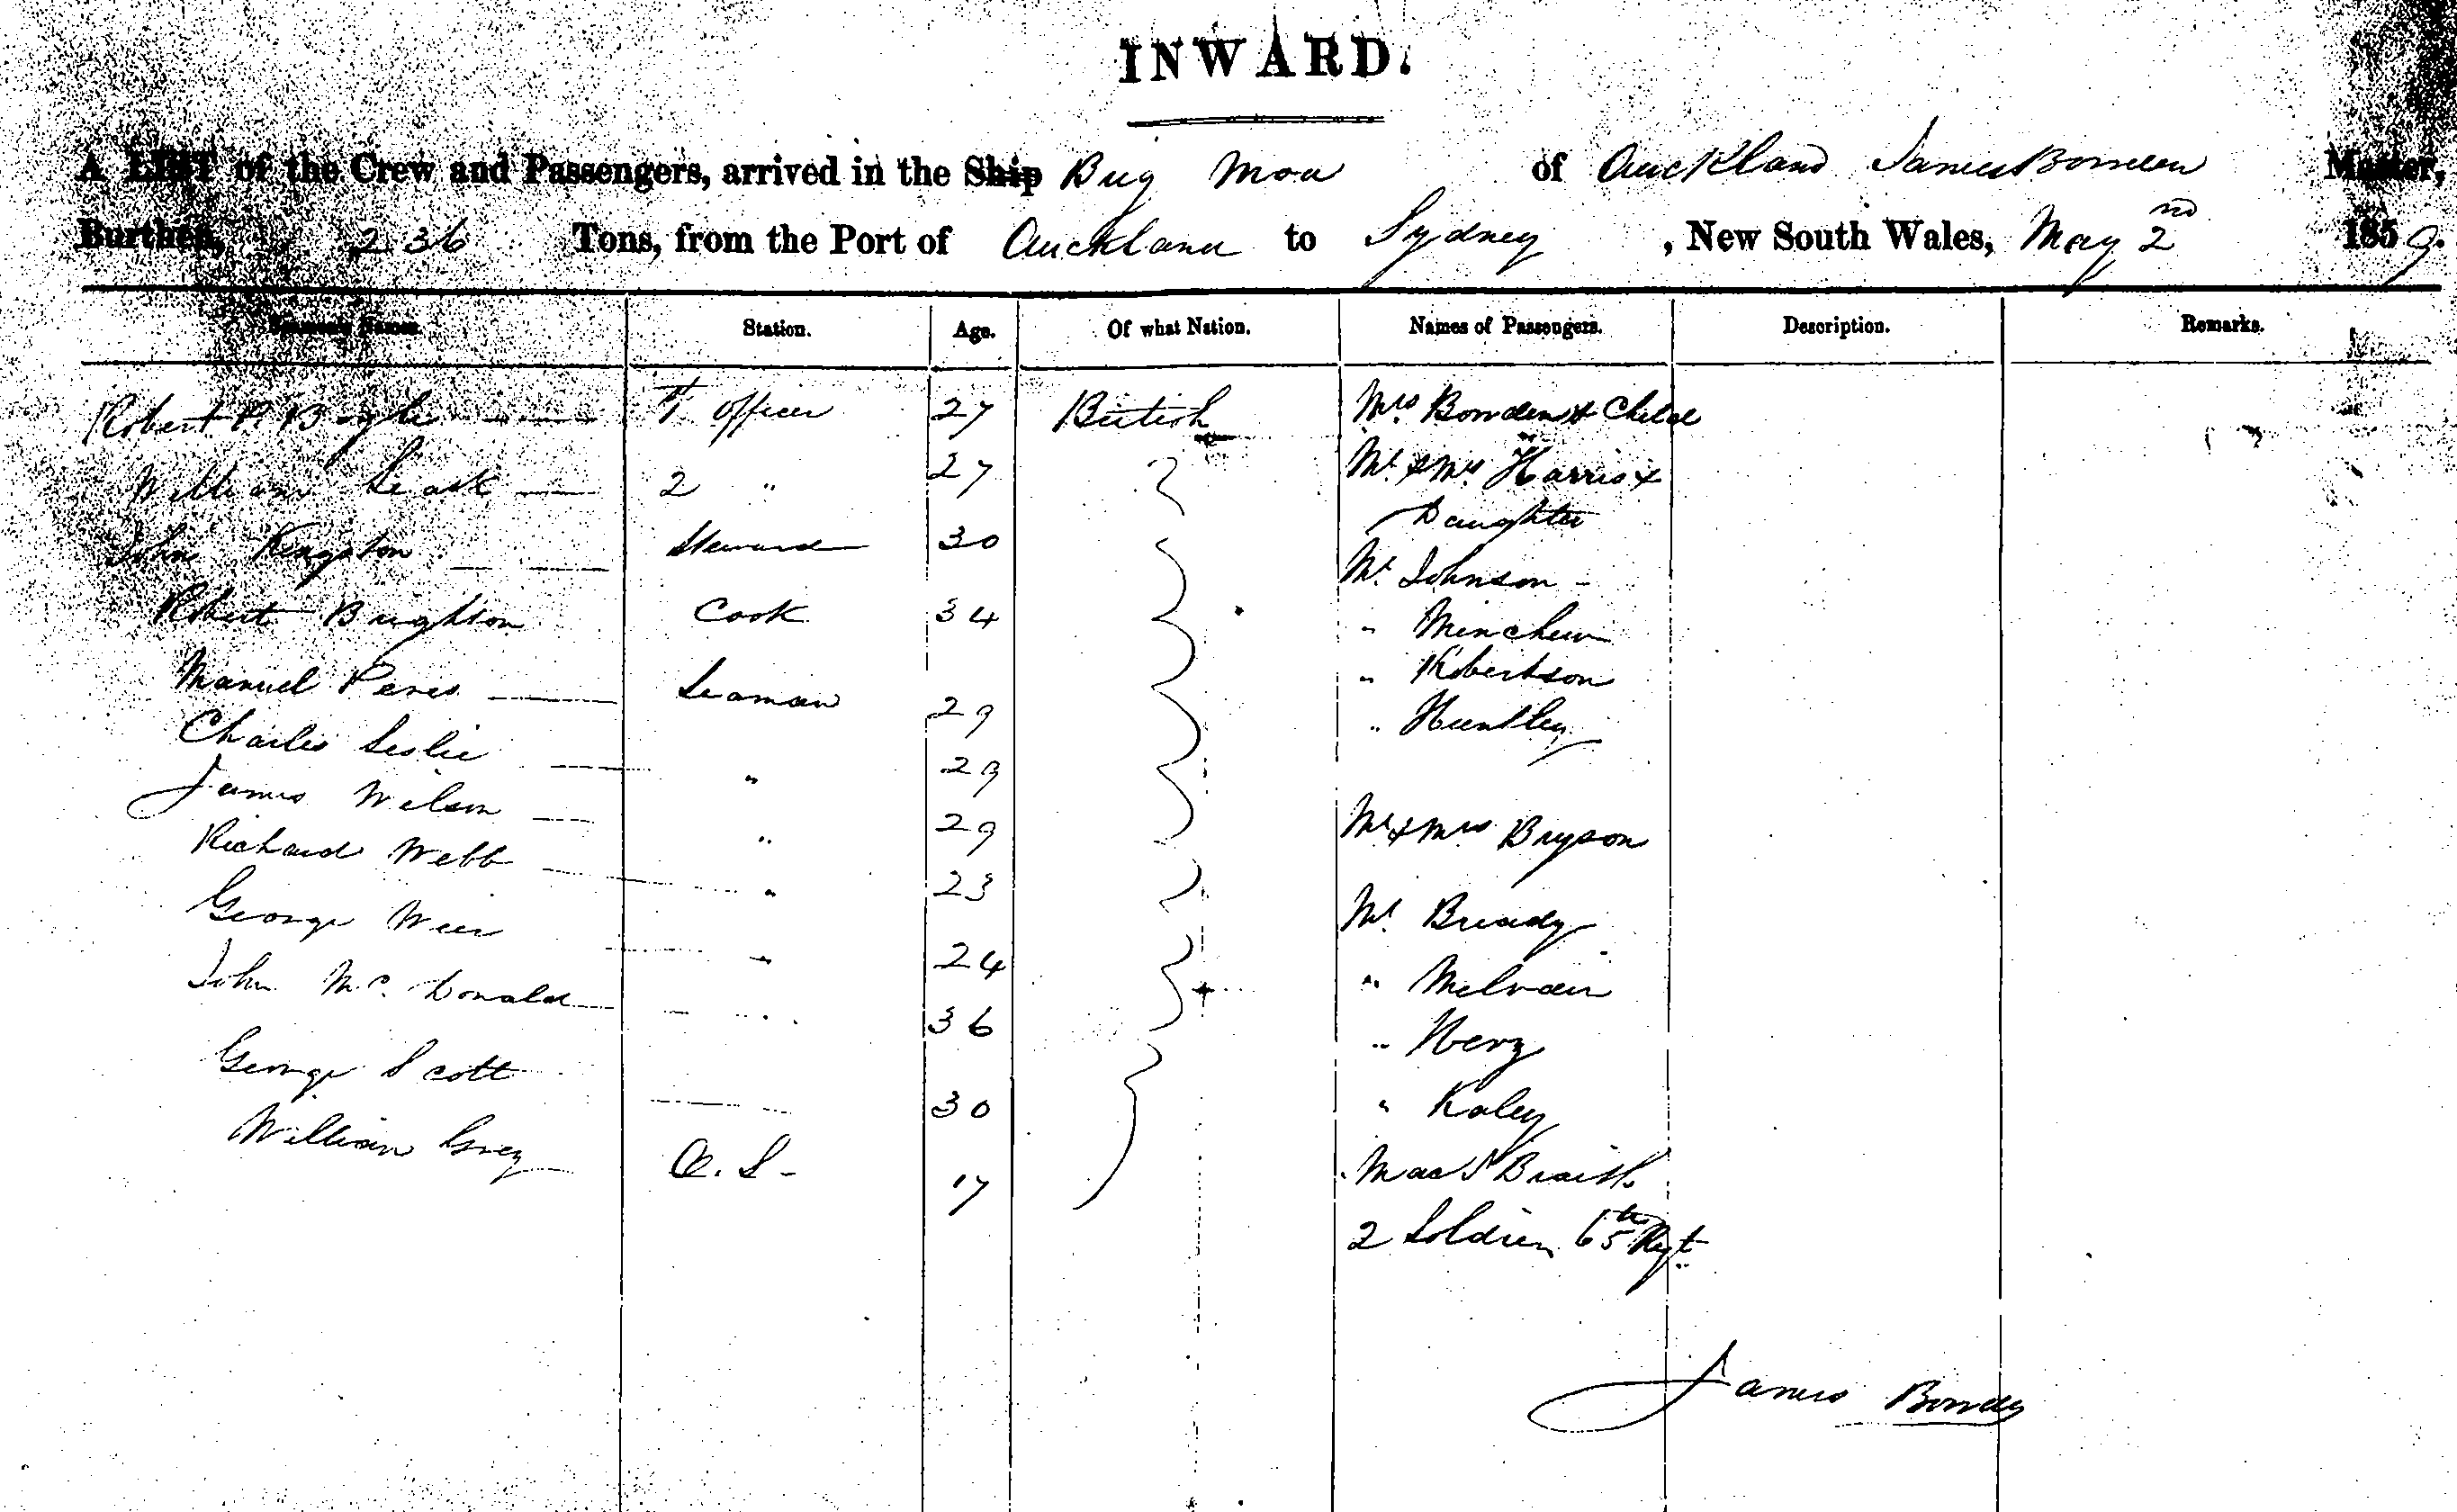 INWARD.
A LIST of the Crew and Passengers, arrived in the Ship Brig Moa of Auckland James Bowden Master,
Burthen, 236 Tons, from the Port of Auckland to Sydney, New South Wales, May 2nd 1859.
Seamen's Names. Station. Age. Of what Nation. Names of Passengers. Description. Remarks.
Robert P. 1st Officer 27 British Mrs Bowden & Child
William Leask 2 " 27 Mr & Mrs Harris &
Daughter
John Kingston Steward 30 Mr Johnson
Robert Brighton Cook 34 " Minchin
" Robertson
Manuel Peres Seaman 29 " Huntley
Charles Leslie " 29
James Wilson " 29 Mr & Mrs Bryson
Richard Webb " 23
George Weir " 24 Mr Bready
John McDonald " 36 " Melvain
" Herz
George Scott 30 " Kaley
William Grey O.S. 17
2 Soldiers 65th Regt
James Bowden